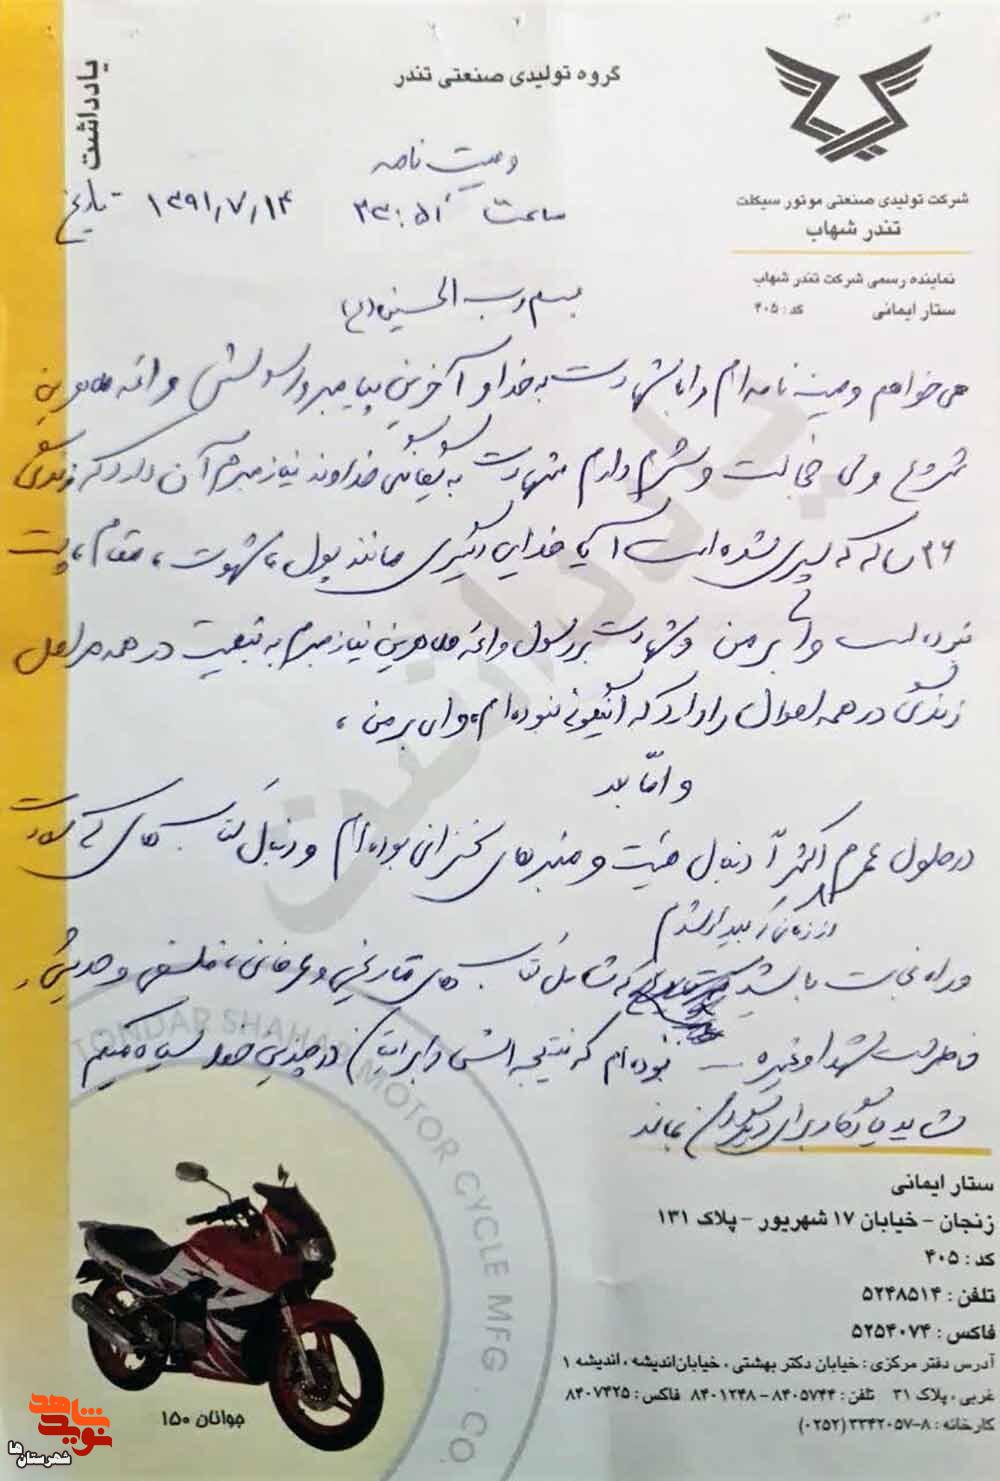 یادداشت
گروه تولیدی صنعتی تندر
شرکت تولیدی صنعتی موتور سیکلت
تندر شهاب
نماینده رسمی شرکت تندر شهاب
ستار ایمانی کد : ۴۰۵
وصیت نامه
ساعت ۲۳:۵۱ تاریخ ۱۳۹۱,۷,۱۴
بسم رب الحسین (ع)
می خواهم وصیت نامه ام را با شهادت به خدا و آخرین پیامبر و رسولش و ائمه طاهرین
شروع ولی خجالت و شرم دارم شهادت به یگانگی خداوند نیاز مبرم آن دارد که زندگی
۳۶ ساله که سپری شده است آیا خدایی دیگری مانند پول ، شهوت ، مقام ، پست
نبوده است وای بر من و شهادت بر رسول و ائمه طاهرین نیاز مبرم به تبعیت در همه مراحل
زندگی در همه احوال را دارد که اینگونه نبوده ام، وای بر من ،
و امّا بعد
در طول عمرم اکثراً دنبال هیئت و منبرهای سخنرانی بوده ام و دنبال کتاب های که سعادت
از زمانی که بیدار شدم
و راه نجات باشد که شامل کتاب های تاریخی و عرفانی ، فلسفی و حدیثی و
خاطرات شهدا و غیره ... بوده ام که نتیجه اش را برایتان در چندین خط سیاه میکنم
شاید یادگار برای دیگران بماند
TONDAR SHAHAB MOTOR CYCLE MFG CO.
یادداشت
ستار ایمانی
زنجان - خیابان ۱۷ شهریور - پلاک ۱۳۱
کد : ۴۰۵
تلفن : ۵۲۴۸۵۱۴
فاکس : ۵۲۵۴۰۷۴
آدرس دفتر مرکزی : خیابان دکتر بهشتی ، خیابان اندیشه ، اندیشه ۱
غربی ، پلاک ۳۱ تلفن : ۸۴۰۵۷۴۴ - ۸۴۰۱۲۴۸ فاکس : ۸۴۰۷۴۲۵
کارخانه : ۸-۳۳۴۲۰۵۷ (۰۲۵۲)
جوانان ۱۵۰
نوید شاهد
شهرستان ها